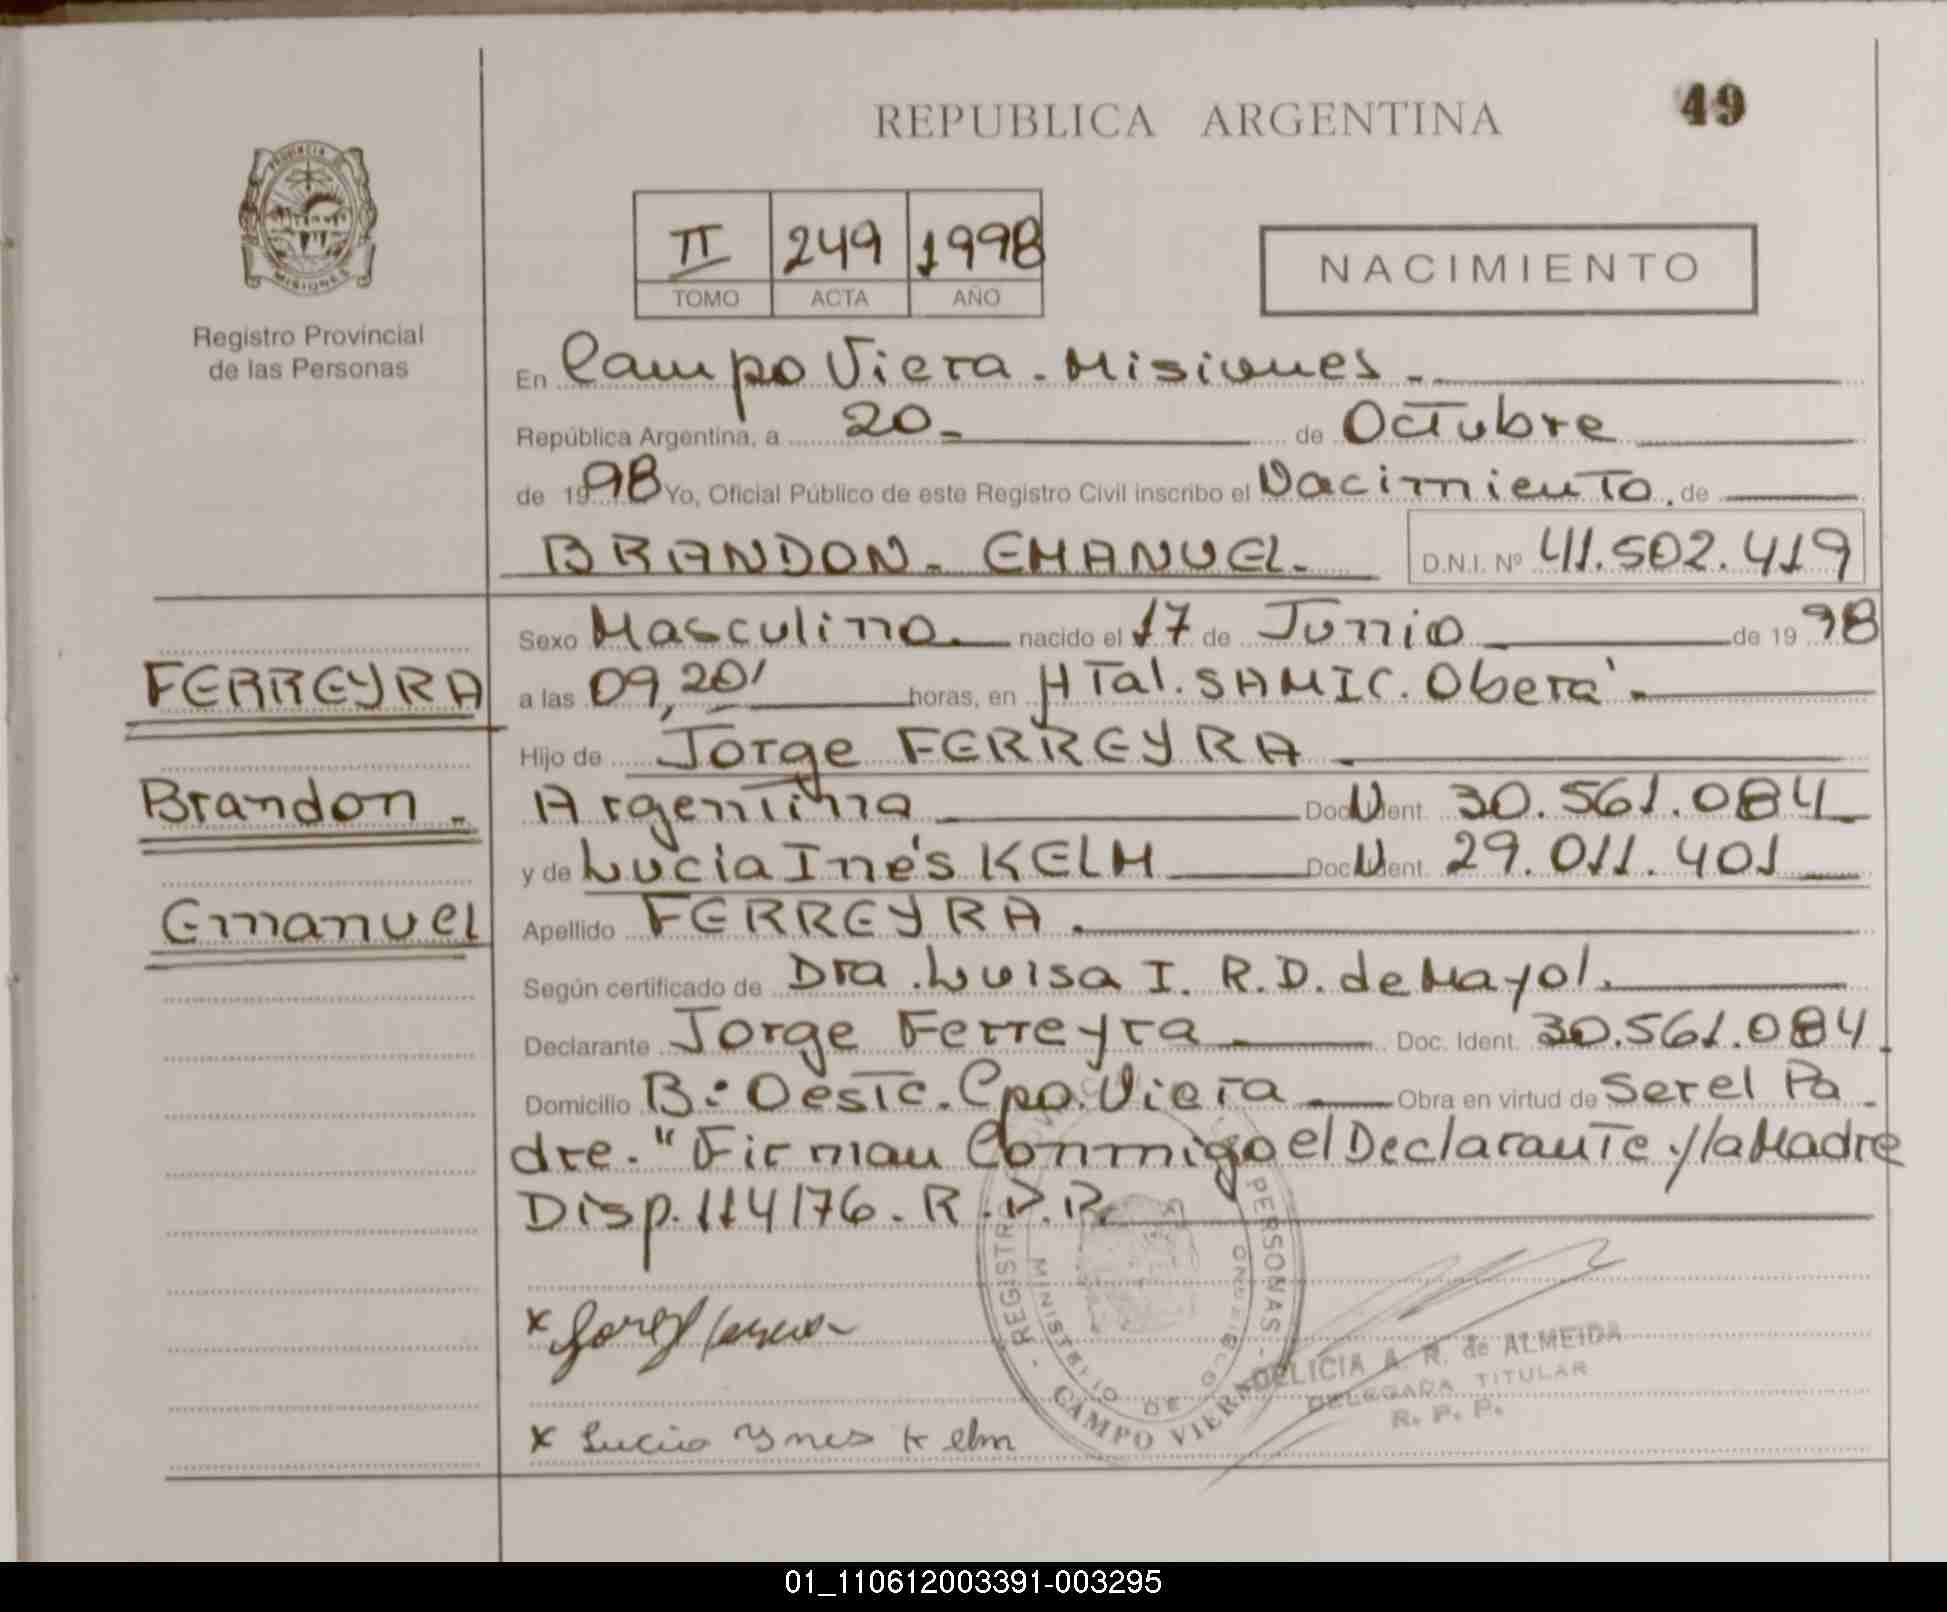 REPUBLICA ARGENTINA
49
PROVINCIA DE
MISIONES
Registro Provincial
de las Personas
II 249 1998
TOMO ACTA AÑO
NACIMIENTO
En Campo Viera - Misiones -
República Argentina, a 20 - de Octubre
de 1998 Yo, Oficial Público de este Registro Civil inscribo el Nacimiento. de
BRANDON - EMANUEL - D.N.I. Nº 41.502.419
Sexo Masculino. nacido el 17 de Junio de 19 98
FERREYRA
a las 09,20' horas, en HTal. SAMIC. Oberá -
Hijo de Jorge FERREYRA
Brandon -
Argentina Doc. Ident. 30.561.084
y de Lucia Inés KELM Doc. Ident. 29.011.401
Emanuel
Apellido FERREYRA.
Según certificado de Dra. Luisa I. R. D. de Mayol.
Declarante Jorge Ferreyra Doc. Ident. 30.561.084
Domicilio B: Oeste. Cpo. Viera Obra en virtud de Ser el Pa
dre. "Firman Conmigo el Declarante y la Madre
Disp. 114/76. R.P.P.
x
x Lucia Ynes Kelm
REGISTRO PERSONAS
MINISTERIO DE GOBIERNO
CAMPO VIERA
DELICIA A. R. de ALMEIDA
DELEGADA TITULAR
R. P. P.
01_110612003391-003295